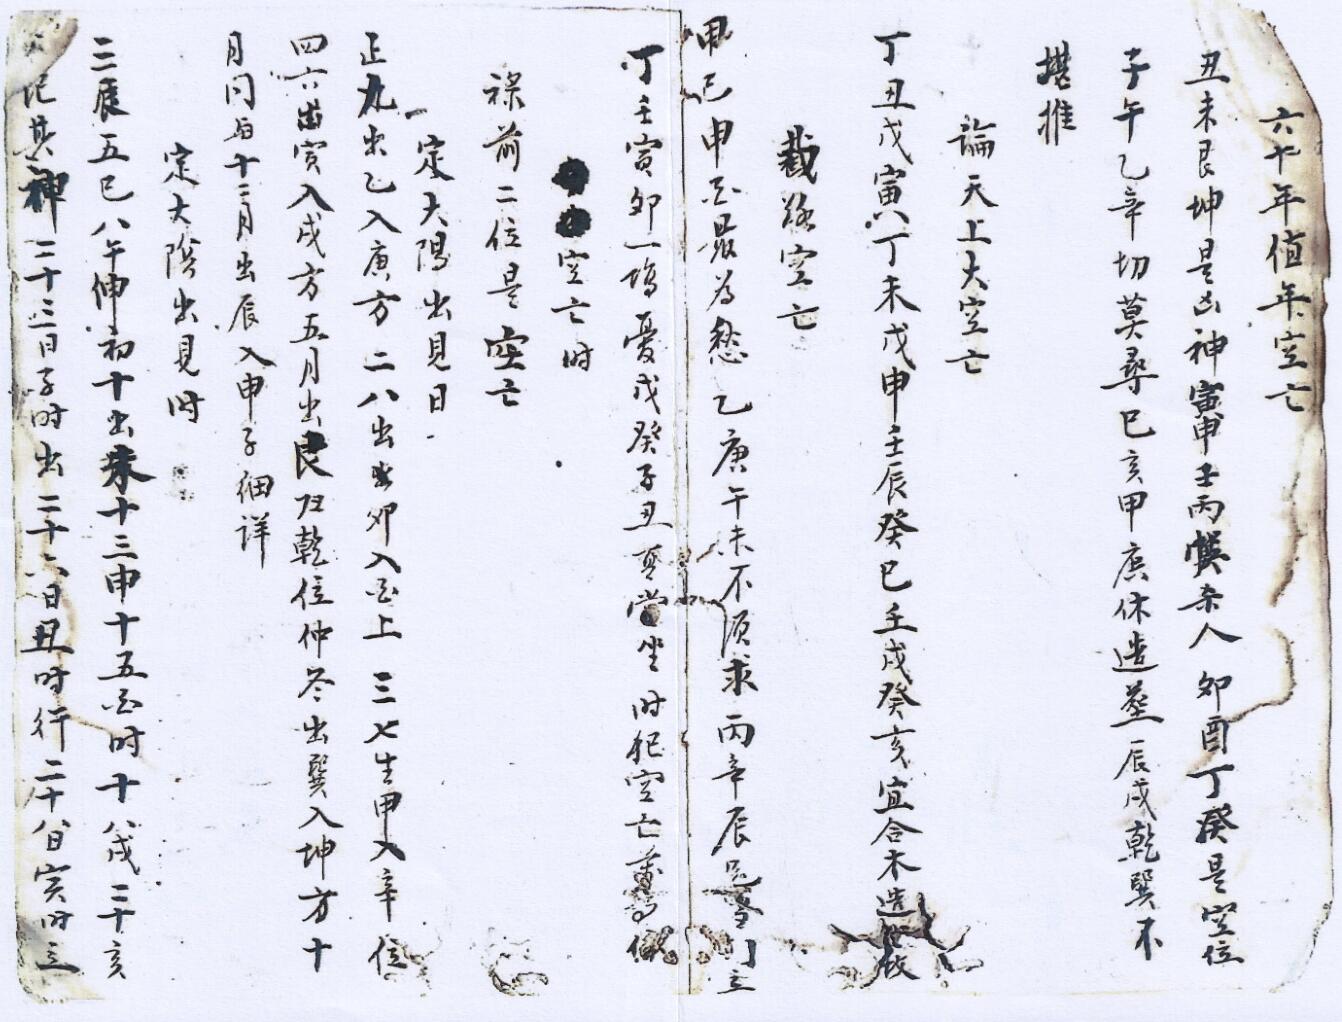 六十年值年空亡
丑未艮坤是凶神寅申壬丙杀人卯酉丁癸是空位
子午乙辛切莫尋巳亥甲庚休造塟辰戌乾巽不
堪推
論天上大空亡
丁丑戊寅丁未戊申壬辰癸巳壬戌癸亥宜合木造
截路空亡
甲己申酉最为愁乙庚午未不須求丙辛辰巳
丁壬寅卯一塲憂戊癸子丑坐时犯空亡
空亡时
禄前二位是空亡
定大陽出見日
正九出乙入庚方二八出卯入酉上三七生甲入辛位
四六出寅入戌方五月出艮归乾位仲冬出巽入坤方十
月同与十二月出辰入申子细详
定大陰出見时
三辰五巳八午伸初十出未十三申十五酉时十八戌二十亥
记其神二十三日子时出二十六日丑时行二十八日寅时